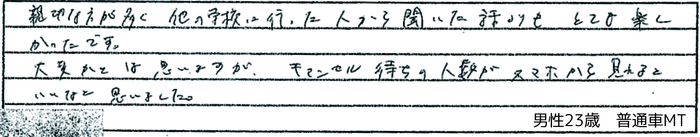 親切な方が多く 他の学校に行った人から聞いた話よりも とても楽し
かったです。
大変かとは思いますが、キャンセル待ちの人数がスマホから見れると
いいなと思いました。
男性23歳 普通車MT